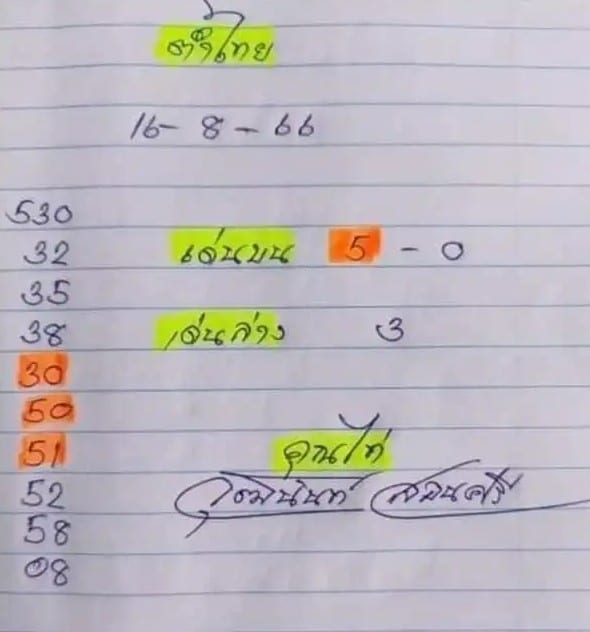 ตั๋วไทย
16-8-66
530
32 เด่นบน 5-0
35
38 เด่นล่าง 3
30
50
51 คุณไก่
52
58
08